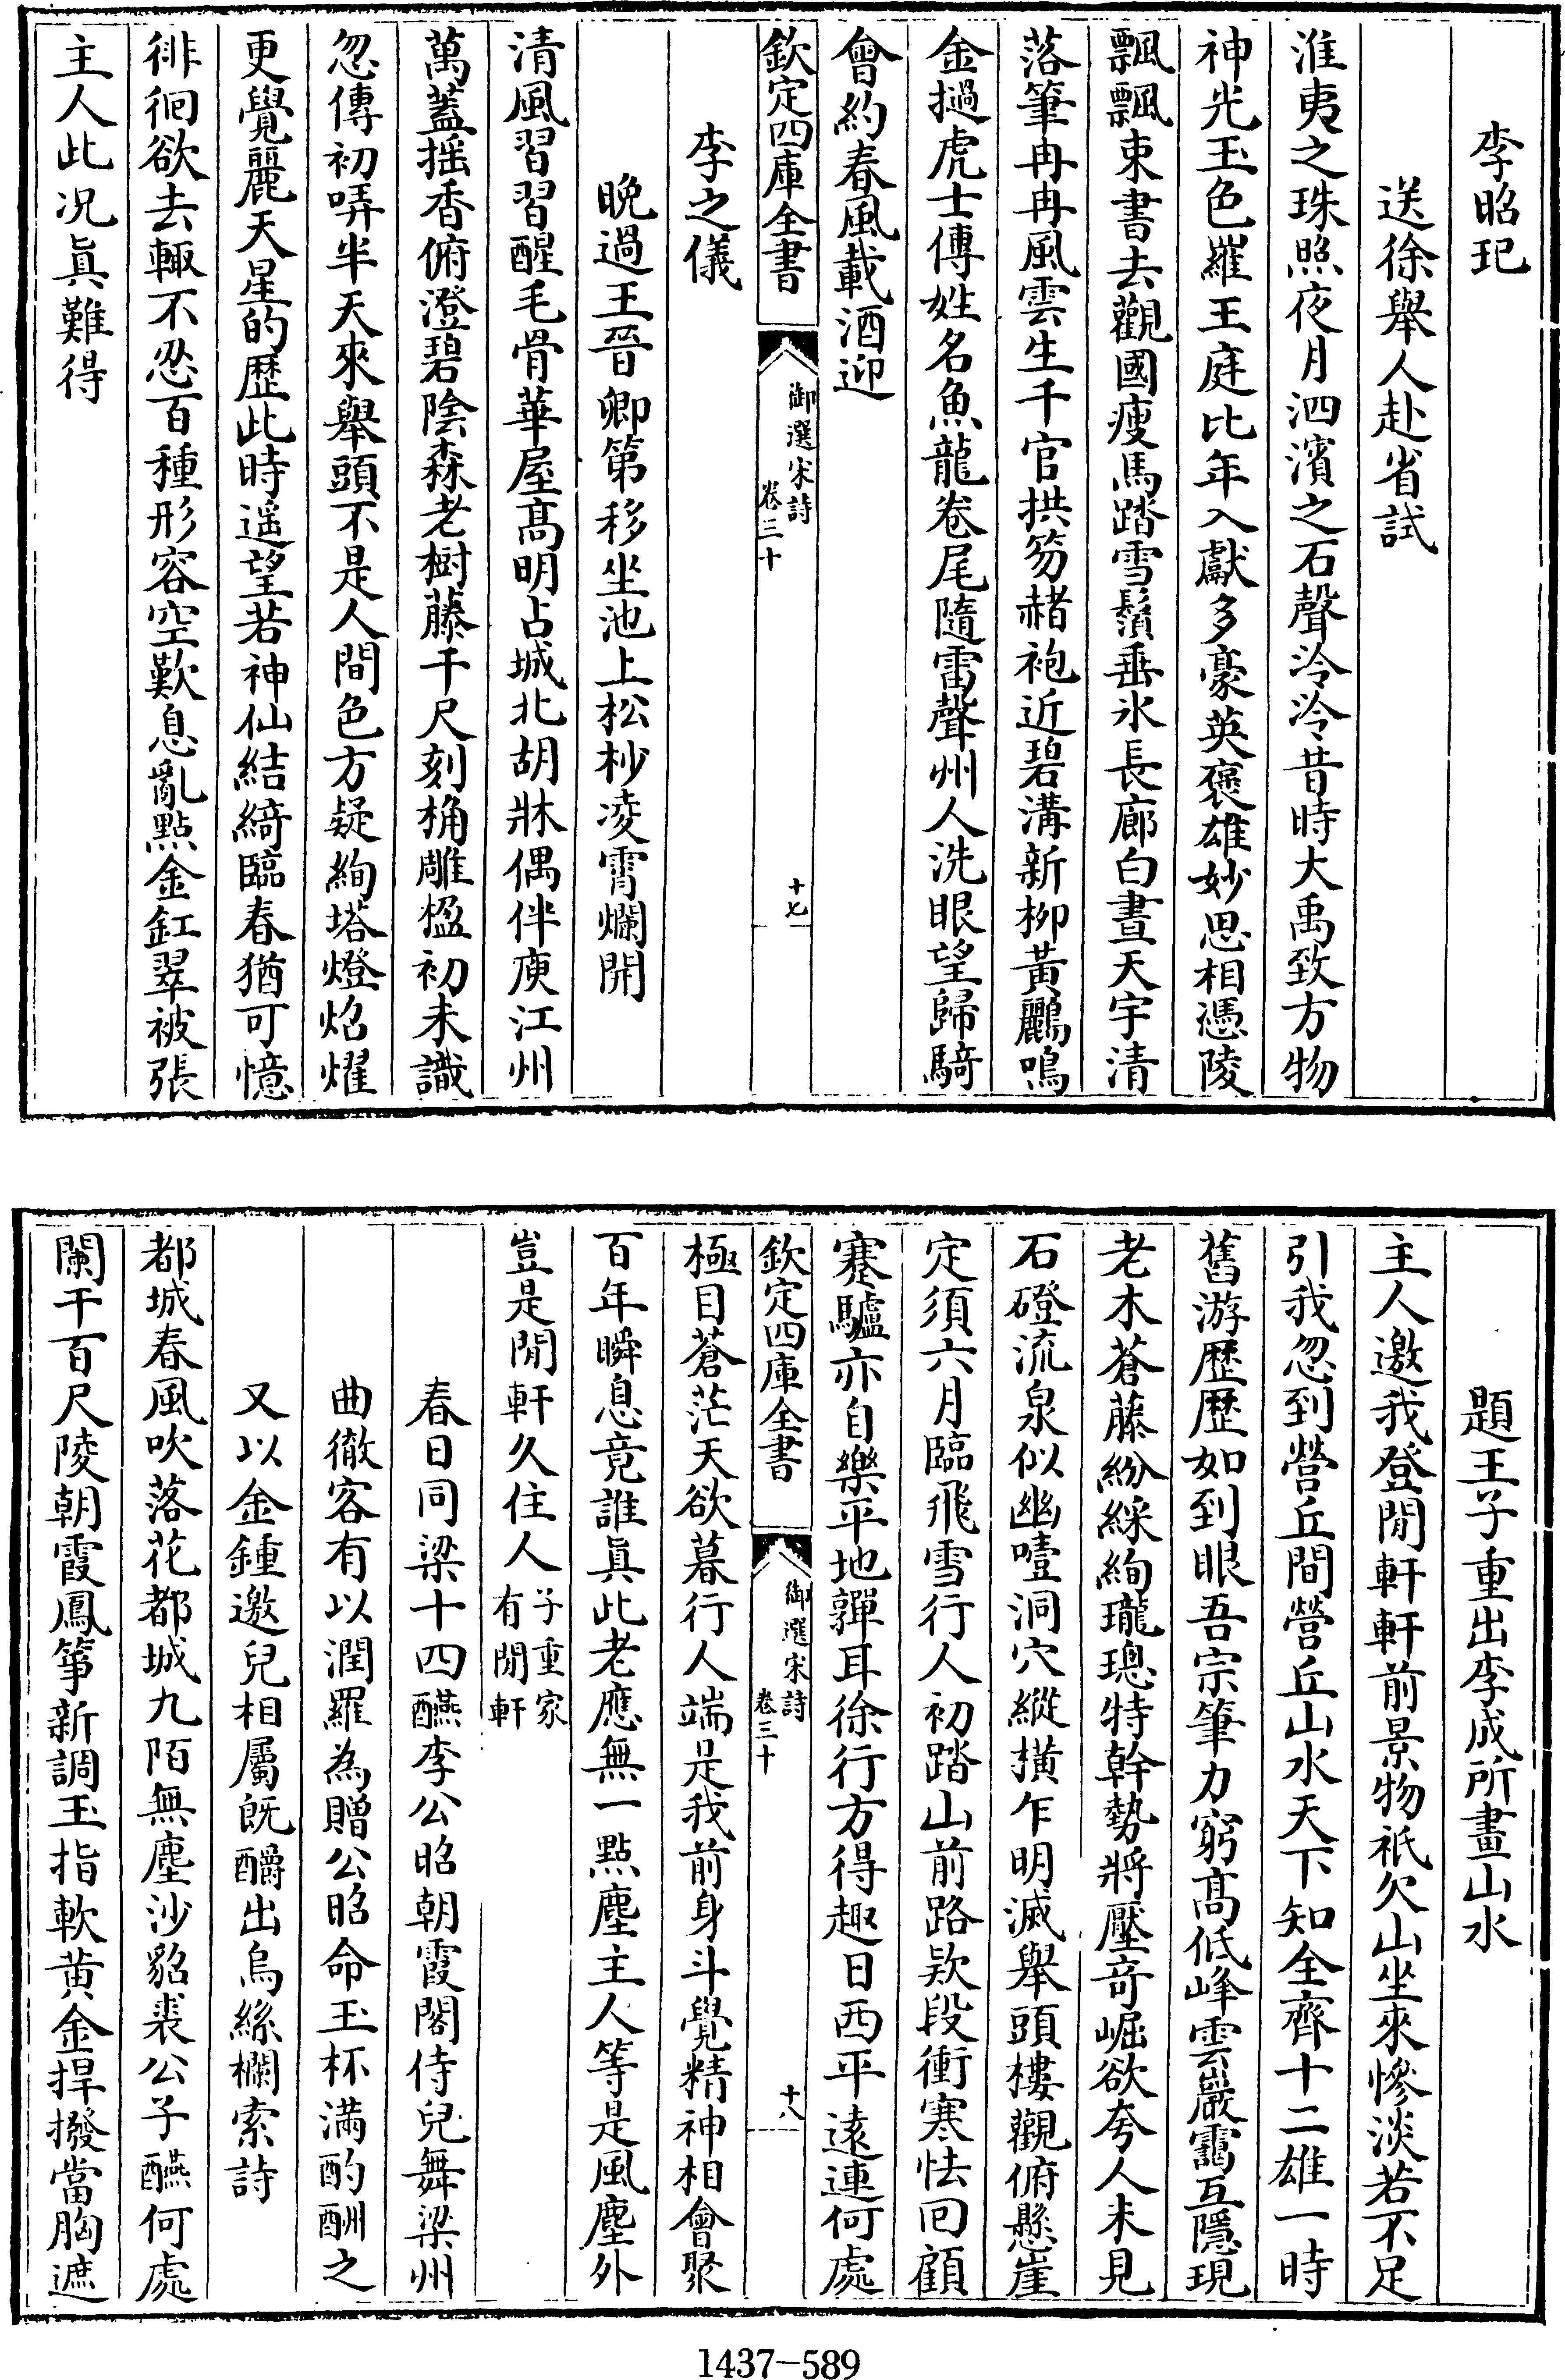 李昭玘
送徐舉人赴省試
淮夷之珠照夜月泗濱之石聲泠泠昔時大禹致方物
神光玉色羅王庭比年入獻多豪英褒雄妙思相憑陵
飄飄束書去觀國瘦馬踏雪鬚垂氷長廊白晝天宇清
落筆冉冉風雲生千官拱笏赭袍近碧溝新柳黃鸝鳴
金撾虎士傳姓名魚龍卷尾隨雷聲州人洗眼望歸騎
會約春風載酒迎
欽定四庫全書
御選宋詩
卷三十
十七
李之儀
晩過王晉卿第移坐池上松杪凌霄爛開
清風習習醒毛骨華屋髙明占城北胡牀偶伴庾江州
萬蓋揺香俯澄碧陰森老樹藤千尺刻桷雕楹初未識
忽傳初哢半天來舉頭不是人間色方疑絢塔燈焰燿
更覺麗天星的歴此時遥望若神仙結綺臨春猶可憶
徘徊欲去輙不忍百種形容空歎息亂點金釭翠被張
主人此况真難得
題王子重出李成所畫山水
主人邀我登閒軒軒前景物祇欠山坐來慘淡若不足
引我忽到營丘間營丘山水天下知全齊十二雄一時
舊游歴歴如到眼吾宗筆力窮髙低峰雲巖靄互隱現
老木蒼藤紛綵絢瓏璁特幹勢將壓竒崛欲夸人未見
石磴流泉似幽噎洞穴縱横乍明滅舉頭樓觀俯懸崖
定須六月臨飛雪行人初踏山前路欵段衝寒怯回顧
蹇驢亦自樂平地嚲耳徐行方得趣日西平遠連何處
欽定四庫全書
御選宋詩
卷三十
十八
極目蒼茫天欲暮行人端是我前身斗覺精神相會聚
百年瞬息竟誰真此老應無一點塵主人等是風塵外
豈是閒軒久住人子重家有閒軒
春日同梁十四醼李公昭朝霞閣侍兒舞梁州
曲徹客有以潤羅為贈公昭命玉杯滿酌酬之
又以金鍾邀兒相屬既釂出烏絲欄索詩
都城春風吹落花都城九陌無塵沙貂裘公子醼何處
闌干百尺陵朝霞鳳箏新調玉指軟黄金捍撥當胸遮
1437-589